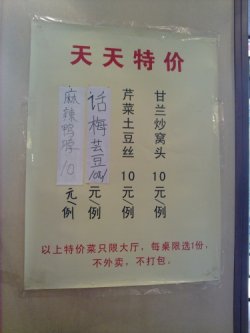 天天特价
甘兰炒窝头 10元/例
芹菜土豆丝 10元/例
话梅芸豆 10元/例
麻辣鸭脖 10元/例
以上特价菜只限大厅，每桌限选1份，
不外卖，不打包。